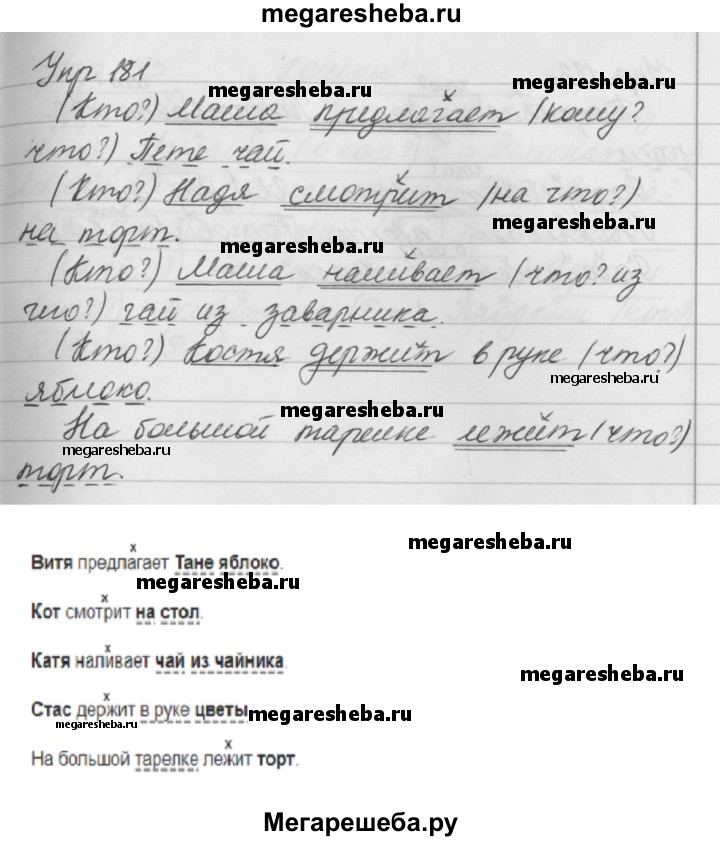 megaresheba.ru
Упр 181
megaresheba.ru
megaresheba.ru
(Кто?) Маша предлагает (кому?
что?) Пете чай.
(Кто?) Надя смотрит (на что?)
megaresheba.ru
на торт.
megaresheba.ru
(Кто?) Маша наливает (что? из
чего?) чай из заварника.
(Кто?) Костя держит в руке (что?)
megaresheba.ru
яблоко.
megaresheba.ru
На большой тарелке лежит (что?)
megaresheba.ru
торт.
megaresheba.ru
x
Витя предлагает Тане яблоко.
megaresheba.ru
x
Кот смотрит на стол.
x
Катя наливает чай из чайника.
megaresheba.ru
x
Стас держит в руке цветы
megaresheba.ru
megaresheba.ru
x
На большой тарелке лежит торт.
Мегарешеба.ру